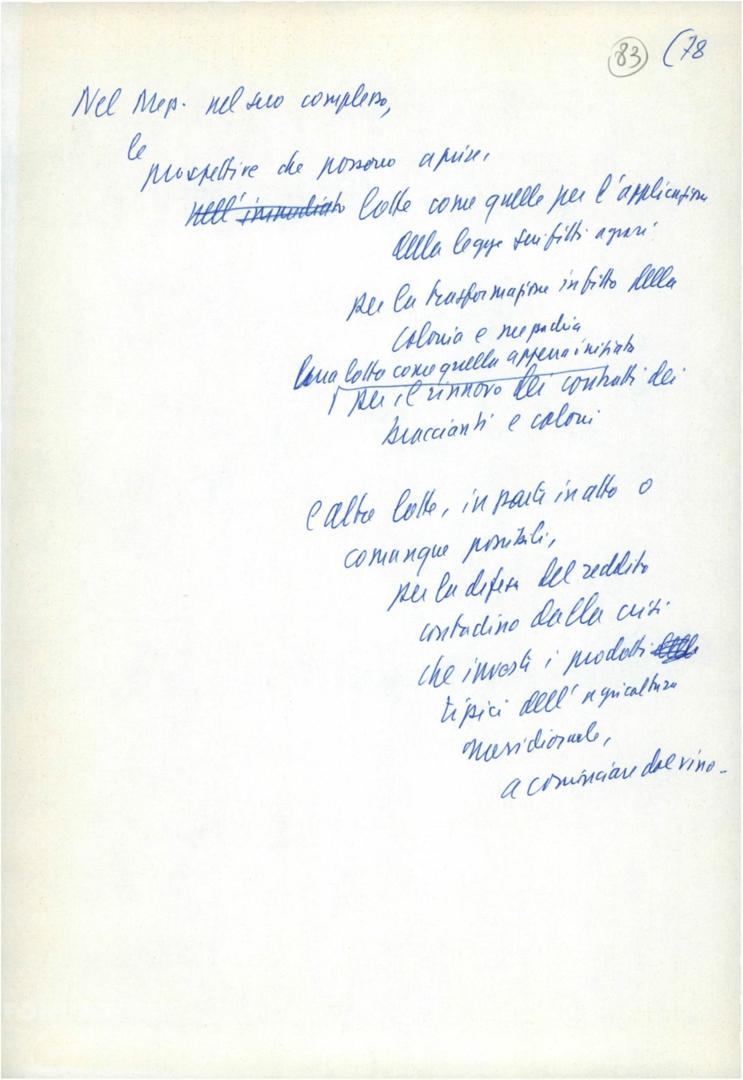 83 (78
Nel Mez. nel suo complesso,
le
prospettive che possono aprire,
nell'immediato lotte come quelle per l'applicazione
della legge sui fitti agrari
per la trasformazione in fitto della
colonia e mezzadria
una lotta come quella appena iniziata
per il rinnovo dei contratti dei
braccianti e coloni
e altre lotte, in parte in atto o
comunque possibili,
per la difesa del reddito
contadino dalla crisi
che investe i prodotti
tipici dell'agricoltura
meridionale,
a cominciare dal vino.